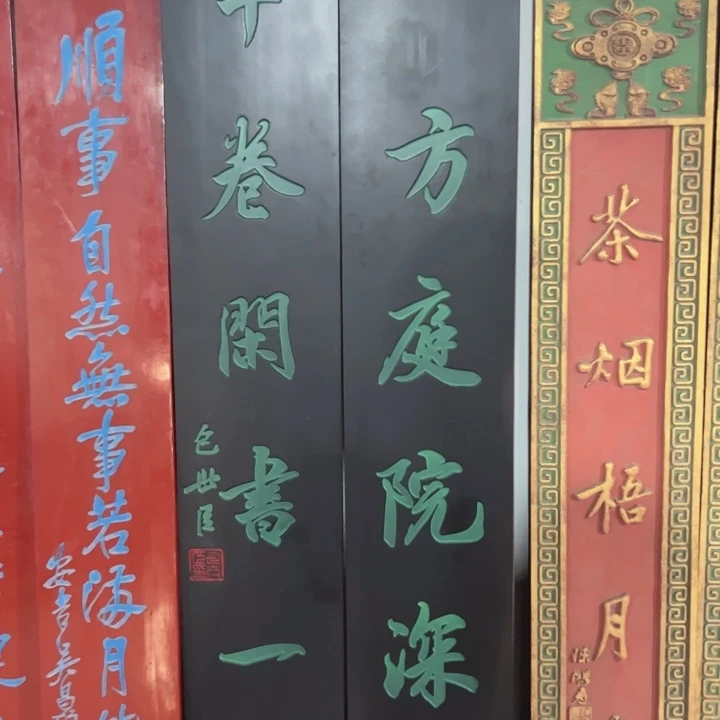 茶烟梧月
方庭院深
卷閑書一
包世臣
順事自然無事若海月
安吉吳昌